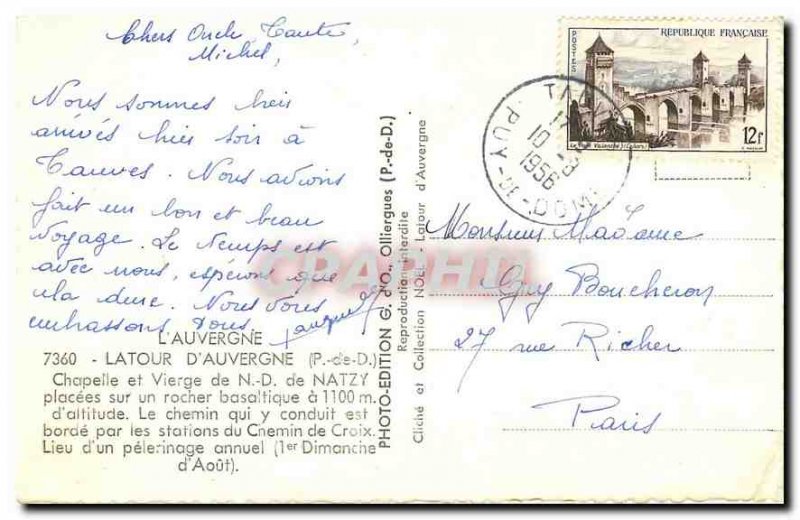 Chers Oncle, Tante,
Michel,
Nous sommes
arrivés hier soir à
Tauves. Nous avions
fait un bon et beau
voyage. Le temps est
avec nous, espérons que
cela dure. Nous vous
embrassons tous.
L'AUVERGNE
7360 - LATOUR D'AUVERGNE (P.-de-D.)
Chapelle et Vierge de N.-D. de NATZY
placées sur un rocher basaltique à 1100 m.
d'altitude. Le chemin qui y conduit est
bordé par les stations du Chemin de Croix.
Lieu d'un pélerinage annuel (1er Dimanche
d'Août).
PHOTO-EDITION G. d'O., Olliergues (P.-de-D.)
Reproduction interdite
Cliché et Collection NOEL - Latour d'Auvergne
CPAPHIL
POSTES
REPUBLIQUE FRANÇAISE
12f
PUY-DE-DOME
1956
Monsieur Madame
Guy Boucheron
27 rue Richer
Paris